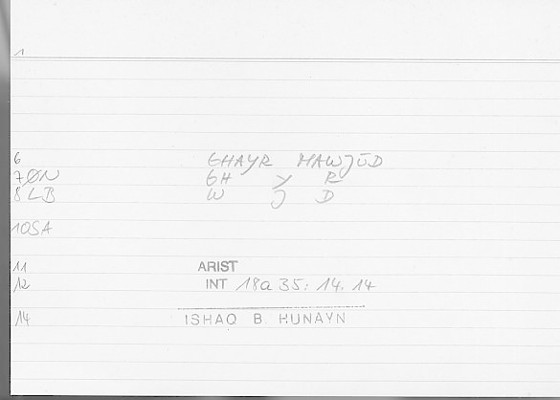 1
6 GHAYR MAWJŪD
7 ØN GH Y R
8 LB W J D
10SA
11 ARIST
12 INT 18a 35: 14. 14
14 ISHAQ B HUNAYN